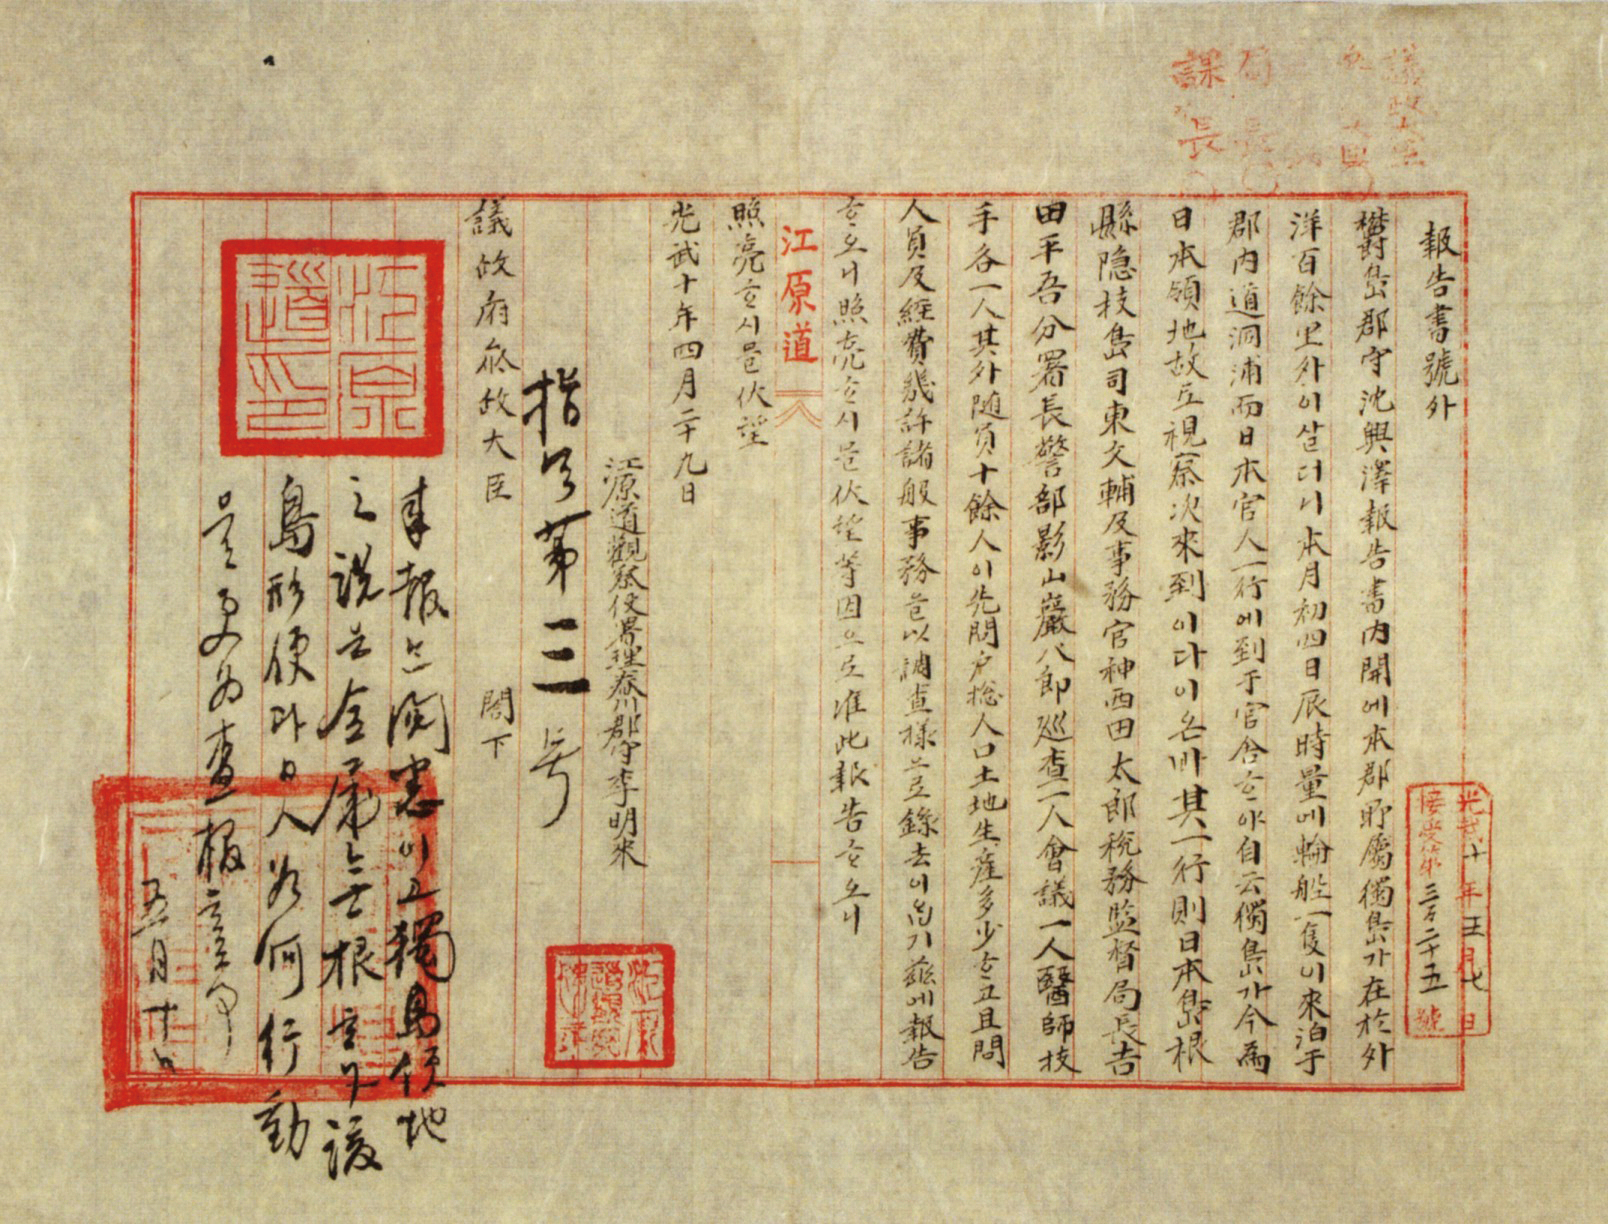 報告書號外
欝島郡守沈興澤報告書內開에本郡所屬獨島가在於外
洋百餘里外이살더니本月初四日辰時量에輪船一隻이來泊于
郡內道洞浦而日本官人一行에到于官舍ᄒᆞ야自云獨島가今爲
日本領地故로視察次來到이다이온바其一行則日本島根
縣隱技島司東文輔及事務官神西田太郎稅務監督局長吉
田平吾分署長警部影山巖八郎巡查一人會議一人醫師技
手各一人其外隨員十餘人이先問戶摠人口土地生産多少ᄒᆞ고且問
人員及經費幾許諸般事務을以調查樣으로錄去이옵기玆에報告
ᄒᆞ오니照亮ᄒᆞ시믈伏望等因으로准此報告ᄒᆞ오니
江原道
照亮ᄒᆞ시믈伏望
光武十年四月二十九日
江原道觀察使署理春川郡守李明來
指令第三号
議政府參政大臣 閣下
來報는閱悉이고獨島領地
之說은全屬無根ᄒᆞ나該
島形便과日人如何行動
을更爲查報ᄒᆞᆯ事
五月十日
江原道印
光武十年五月七日
接受第三百二十五號
課長
局長
議政大臣